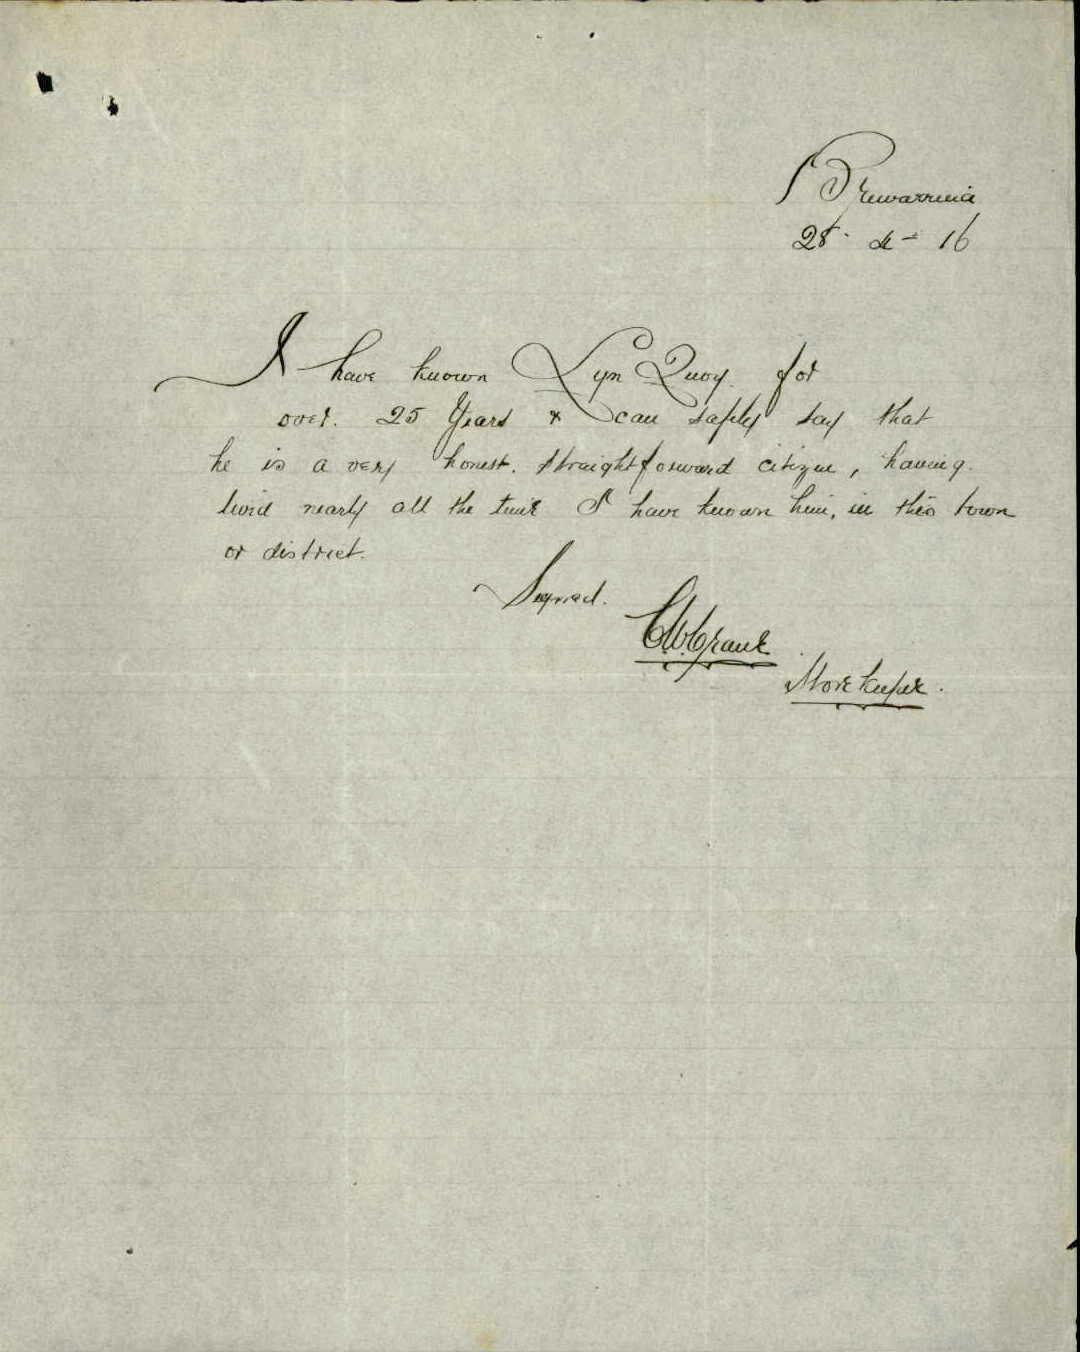 Brewarrina
28 - 4 - 16
I have known Lyn Quoy. for
over. 25 Years & can safely say that
he is a very honest. straightforward citizen, having.
lived nearly all the time I have known him, in this town
or district.
Signed.
Storekeeper.